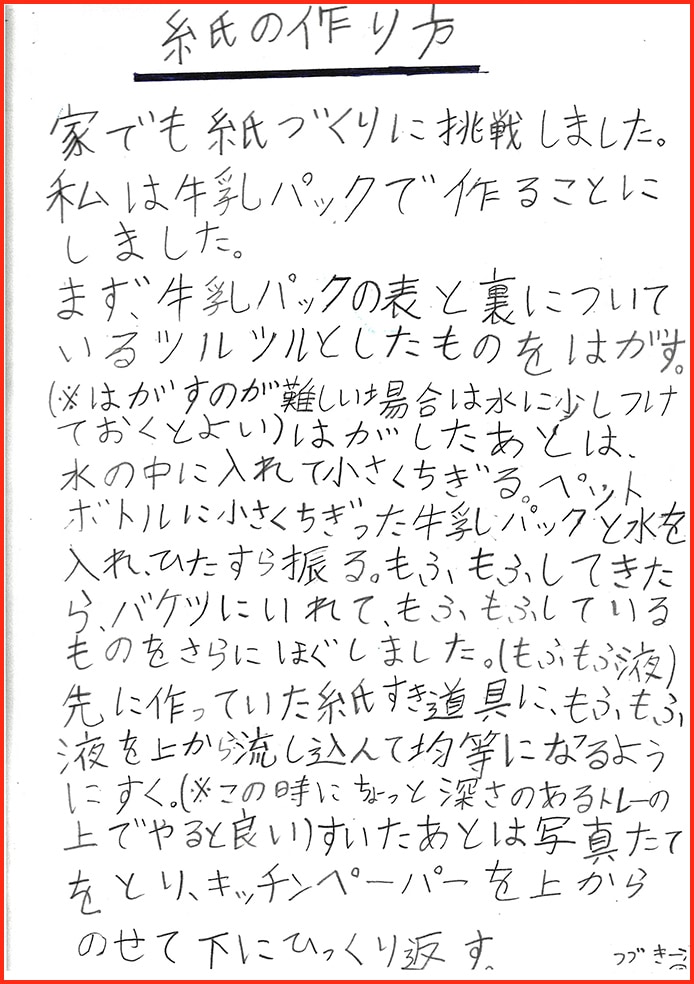 紙の作り方
家でも紙づくりに挑戦しました。
私は牛乳パックで作ることに
しました。
まず、牛乳パックの表と裏について
いるツルツルとしたものをはがす。
(※はがすのが難しい場合は水に少しつけ
ておくとよい)はがしたあとは、
水の中に入れて小さくちぎる。ペット
ボトルに小さくちぎった牛乳パックと水を
入れ、ひたすら振る。もふもふしてきた
ら、バケツにいれて、もふもふしている
ものをさらにほぐしました。(もふもふ液)
先に作っていた紙すき道具に、もふもふ
液を上から流し込んで均等になるよう
にすく。(※この時にちょっと深さのあるトレーの
上でやると良い)すいたあとは写真たて
をとり、キッチンペーパーを上から
のせて下にひっくり返す。
つづき